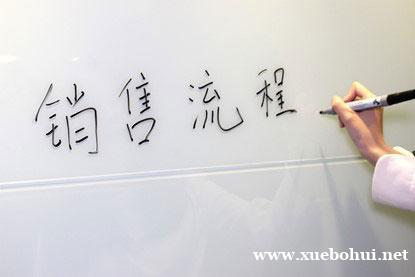 销售流程
www.xuebohui.net